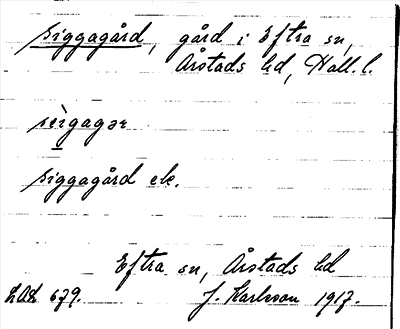 Siggagård, gård i Eftra sn,
Årstads hd, Hall. l.
sìgagər
Siggagård ek.
Eftra sn, Årstads hd
LAL 679. J. Karlsson 1917.